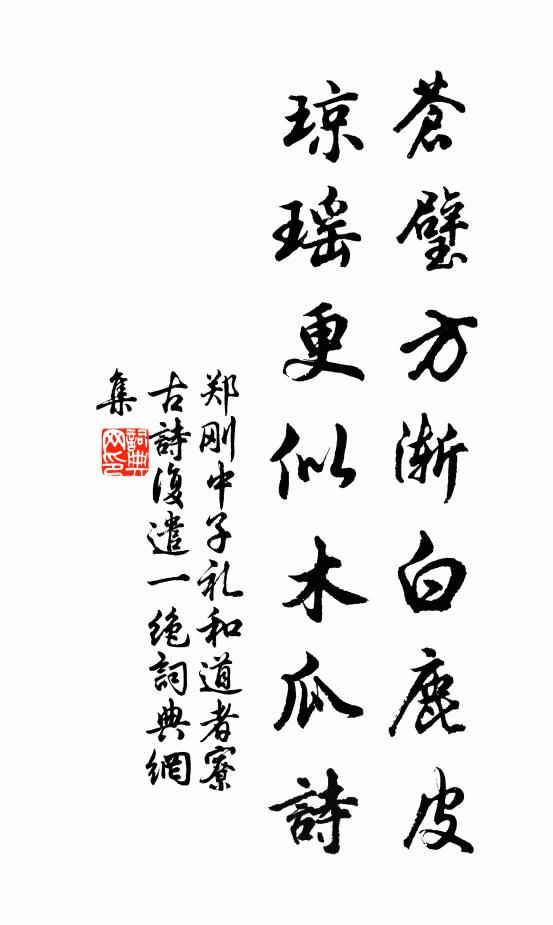 蒼璧方漸白鹿皮
琼瑶更似木瓜詩
郑刚中子礼和道者寮
古詩復遣一絶詞典網
集
詞典网印